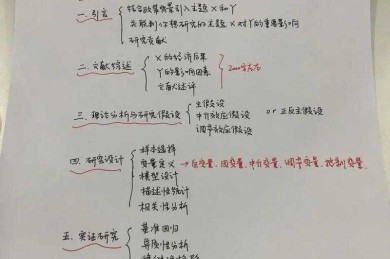 结合政策背景引入主题 X和Y
一.引言
先提到你想研究的主题X对Y的重要影响
研究贡献
X的经济后果
二.文献综述 Y的影响因素 2000字左右
文献述评
主假设
三.理论分析与研究假设 中介效应假设 or 正反主假设
调节效应假设
样本选择
变量定义 → 自变量、因变量、中介变量、调节变量、控制变量
四.研究设计 模型设计
描述性统计
相关性分析
基准回归
五.实证研究 异质性分析